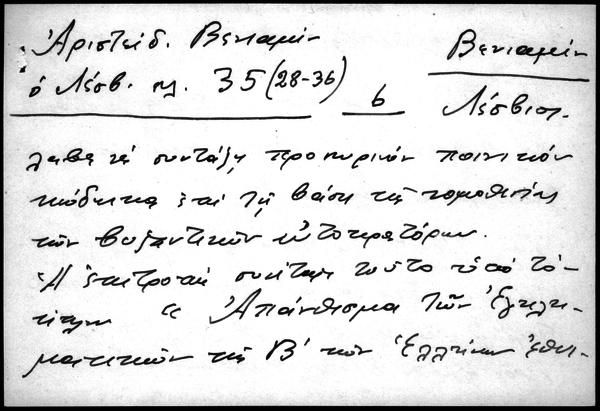 Ἀριστείδ. Βενιαμὶν
ὁ Λέσβ. 35 (28-36)
6
Βενιαμὶν
Λέσβιος.
συντάξῃ προσωρινὸν ποινικὸν
κώδικα ἐπὶ τῇ βάσει τῆς νομοθεσίας
τῶν βυζαντινῶν αὐτοκρατόρων.
Ἡ ἐπιτροπὴ συνέταξε τοῦτο ὑπὸ τὸν
τίτλον "Ἀπάνθισμα τῶν Ἐγκλη-
ματικῶν τῆς Β' τῶν Ἑλλήνων Ἐθνι-